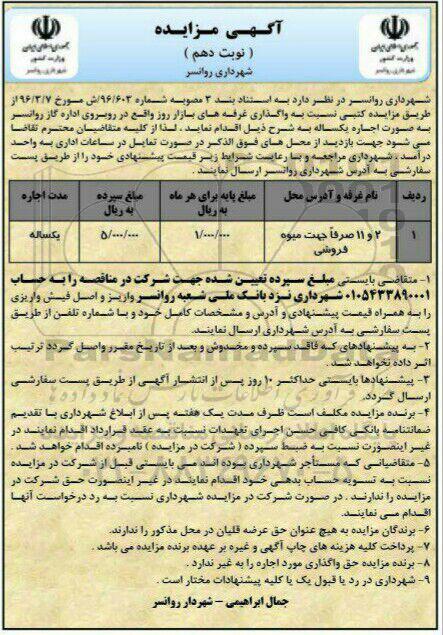 آگهی مزایده
( نوبت دهم )
شهرداری روانسر
جمهوری اسلامی ایران
وزارت کشور
شهرداری روانسر
جمهوری اسلامی ایران
وزارت کشور
شهرداری روانسر
شهرداری روانسر در نظر دارد به استناد بند ۳ مصوبه شماره ۹۶/۶۰۳/ش مورخ ۹۶/۳/۷ از
طریق مزایده کتبی نسبت به واگذاری غرفه های بازار روز واقع در روبروی اداره گاز روانسر
به صورت اجاره یکساله به شرح ذیل اقدام نماید . لذا از کلیه متقاضیان محترم تقاضا
می شود جهت بازدید از محل های فوق الذکر در صورت تمایل در ساعات اداری به واحد
درآمد شهرداری مراجعه و با رعایت شرایط زیر قیمت پیشنهادی خود را از طریق پست
سفارشی به آدرس شهرداری روانسر ارسال نمایند .
ردیف نام غرفه و آدرس محل مبلغ پایه برای هر ماه به ریال مبلغ سپرده به ریال مدت اجاره
۱ ۲ و ۱۱ صرفاً جهت میوه فروشی ۱/۰۰۰/۰۰۰ ۵/۰۰۰/۰۰۰ یکساله
۱- متقاضی بایستی مبلغ سپرده تعیین شده جهت شرکت در مناقصه را به حساب
۰۱۰۵۴۳۳۸۹۰۰۰۱ شهرداری نزد بانک ملی شعبه روانسر واریز و اصل فیش واریزی
را به همراه قیمت پیشنهادی و آدرس و مشخصات کامل خود و با شماره تلفن از طریق
پست سفارشی به آدرس شهرداری ارسال نمایند.
۲- به پیشنهادهای که فاقد سپرده و مخدوش و بعد از تاریخ مقرر واصل گردد ترتیب
اثر داده نخواهد شد .
۳- پیشنهادها بایستی حداکثر ۱۰ روز پس از انتشار آگهی از طریق پست سفارشی
ارسال گردد.
۴- برنده مزایده مکلف است ظرف مدت یک هفته پس از ابلاغ شهرداری با تقدیم
ضمانتنامه بانکی کافی و حسن اجرای تعهدات نسبت به عقد قرارداد اقدام نمایند در
غیر اینصورت نسبت به ضبط سپرده ( شرکت در مزایده ) نامبرده اقدام خواهد شد .
۵- متقاضیانی که مستأجر شهرداری بوده اند می بایستی قبل از شرکت در مزایده
نسبت به تسویه حساب بدهی خود اقدام نمایند در غیر اینصورت حق شرکت در
مزایده را ندارند . در صورت شرکت در مزایده شهرداری نسبت به رد درخواست آنها
اقدام می نمایند.
۶- برندگان مزایده به هیچ عنوان حق عرضه قلیان در محل مذکور را ندارند.
۷- پرداخت کلیه هزینه های چاپ آگهی و غیره بر عهده برنده مزایده می باشد .
۸- برنده مزایده حق واگذاری مورد اجاره را به غیر ندارد .
۹- شهرداری در رد یا قبول یک یا کلیه پیشنهادات مختار است .
جمال ابراهیمی – شهردار روانسر